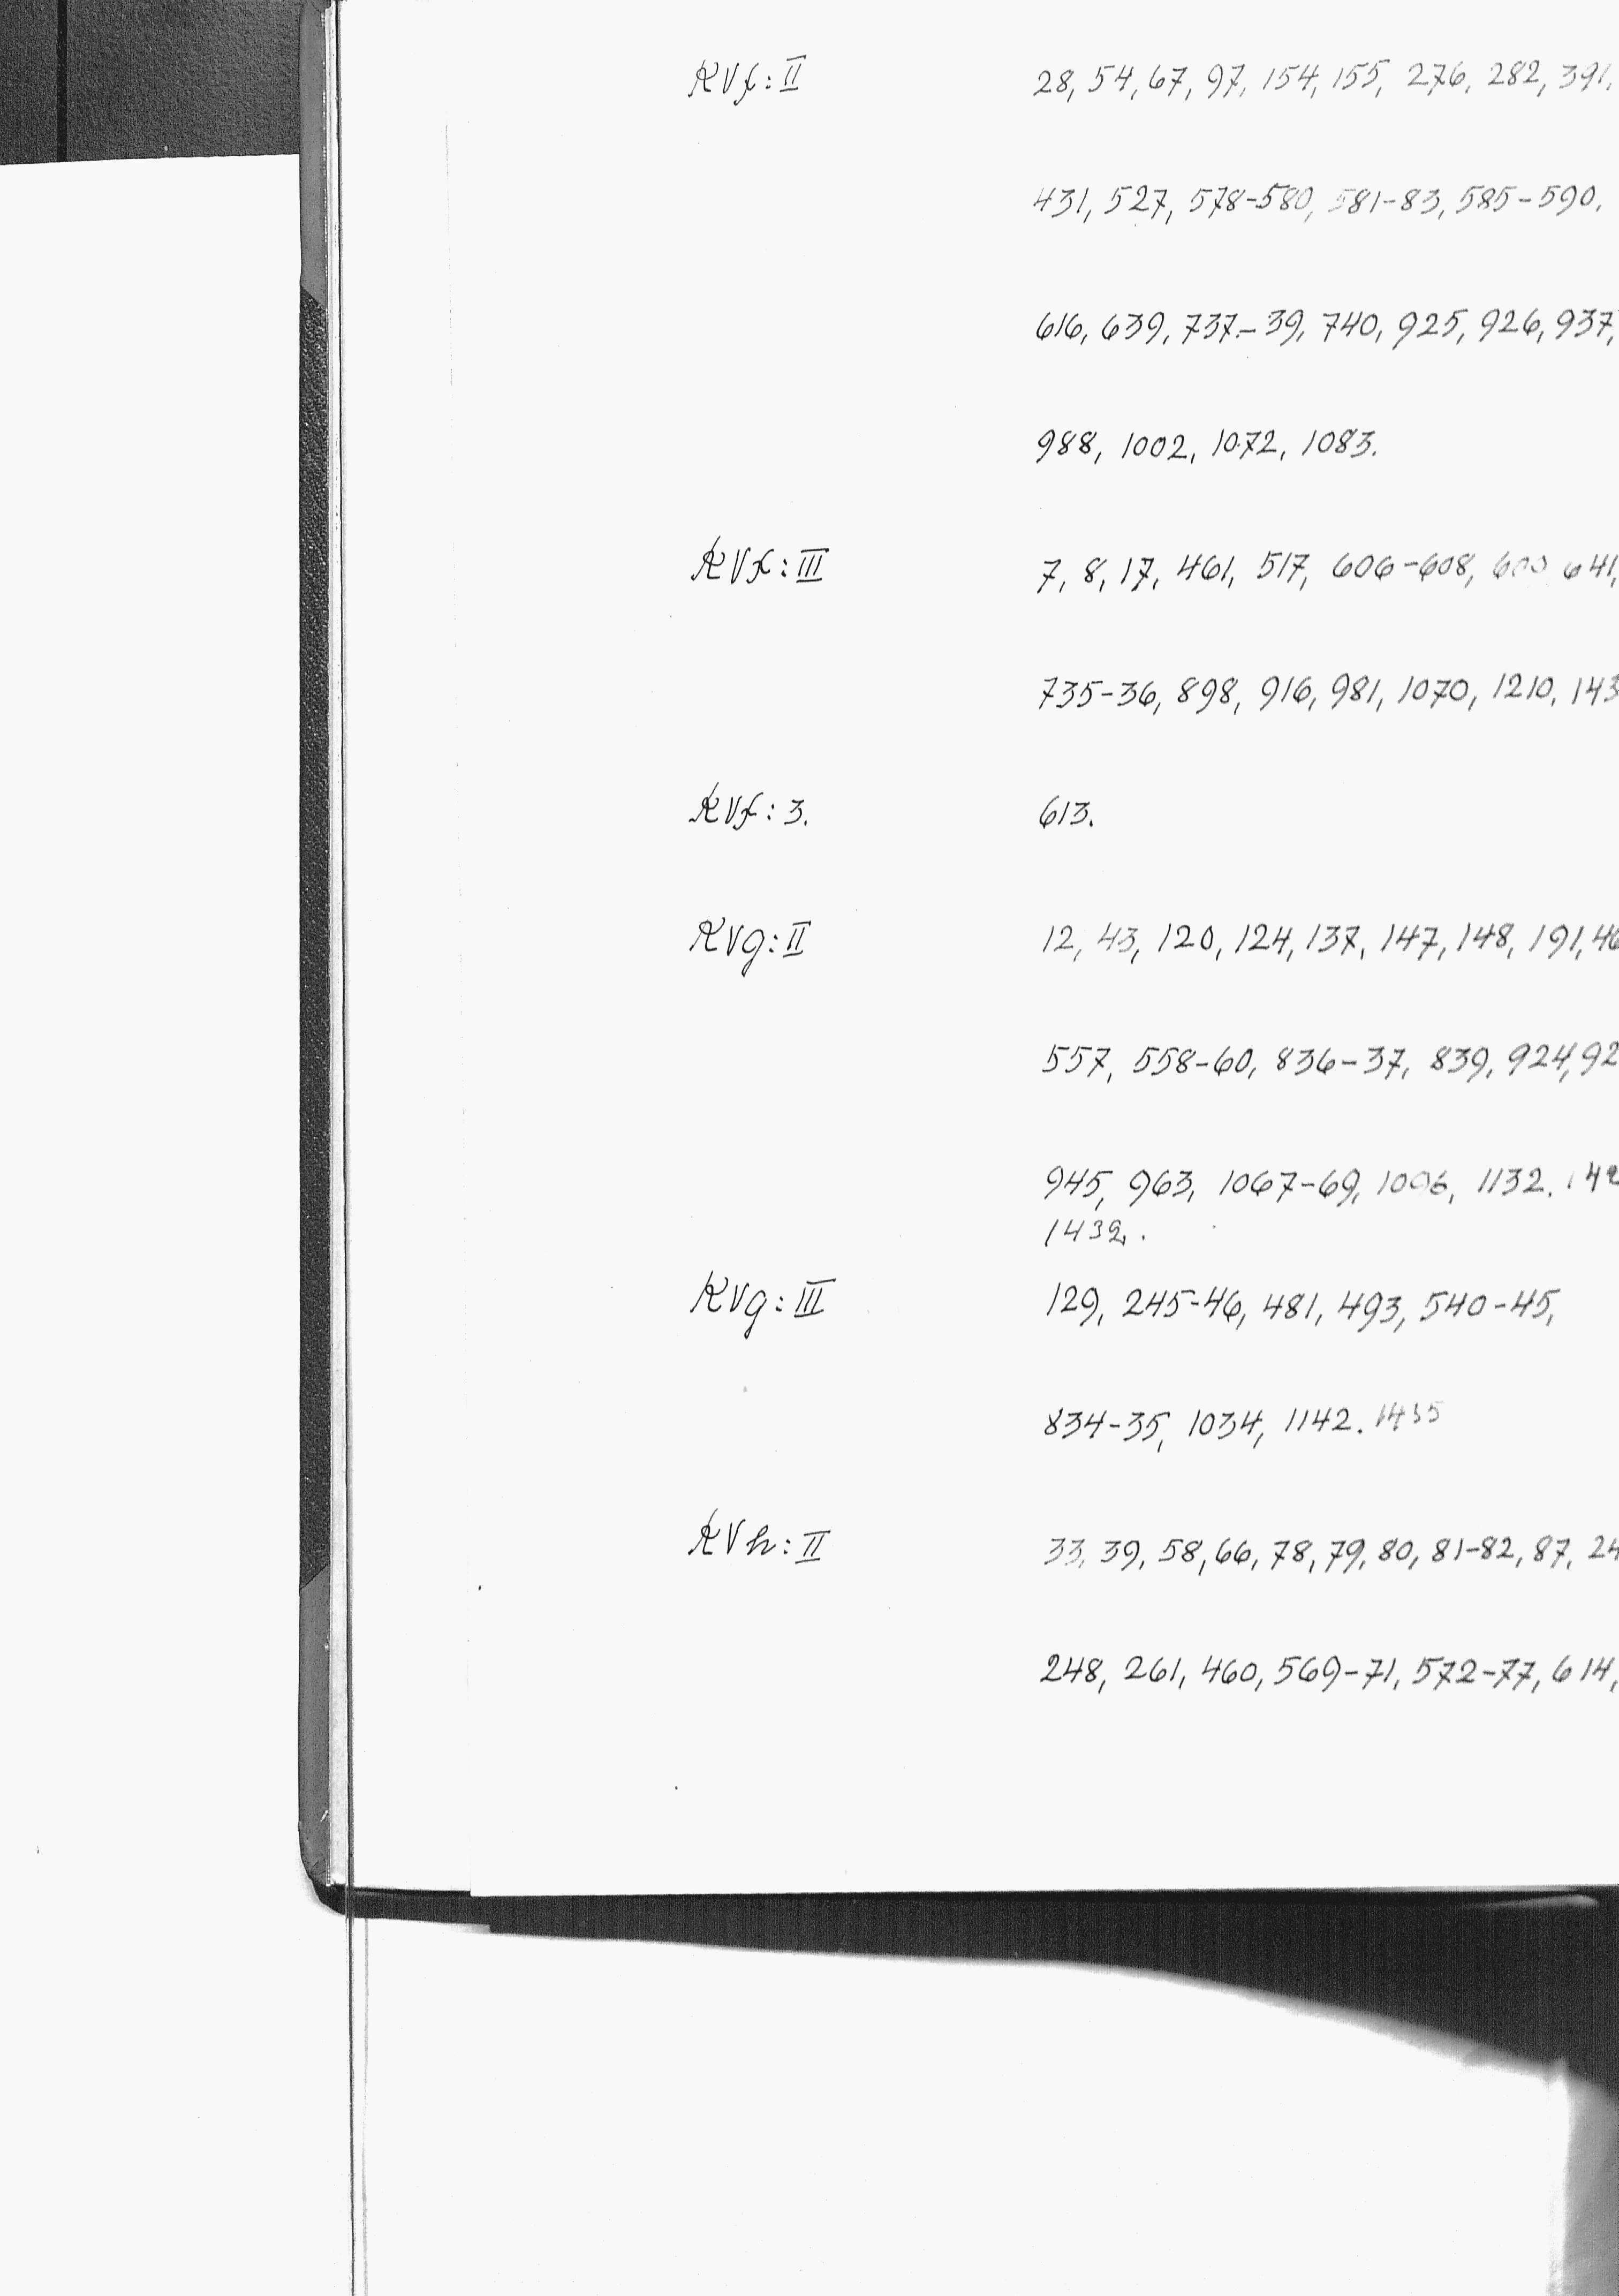 KVf:II 28, 54, 67, 97, 154, 155, 276, 282, 391,
431, 527, 578-580, 581-83, 585-590,
616, 639, 737-39, 740, 925, 926, 937,
988, 1002, 1072, 1083.
KVf:III 7, 8, 17, 461, 517, 606-608, 641,
735-36, 898, 916, 981, 1070, 1210,
KVf:3. 613.
KVg:II 12, 43, 120, 124, 137, 147, 148, 191,
557, 558-60, 836-37, 839, 924,
945, 963, 1067-69, 1132.
1432.
KVg:III 129, 245-46, 481, 493, 540-45,
834-35, 1034, 1142. 1435
KVh:II 33, 39, 58, 66, 78, 79, 80, 81-82, 87,
248, 261, 460, 569-71, 572-77, 614,